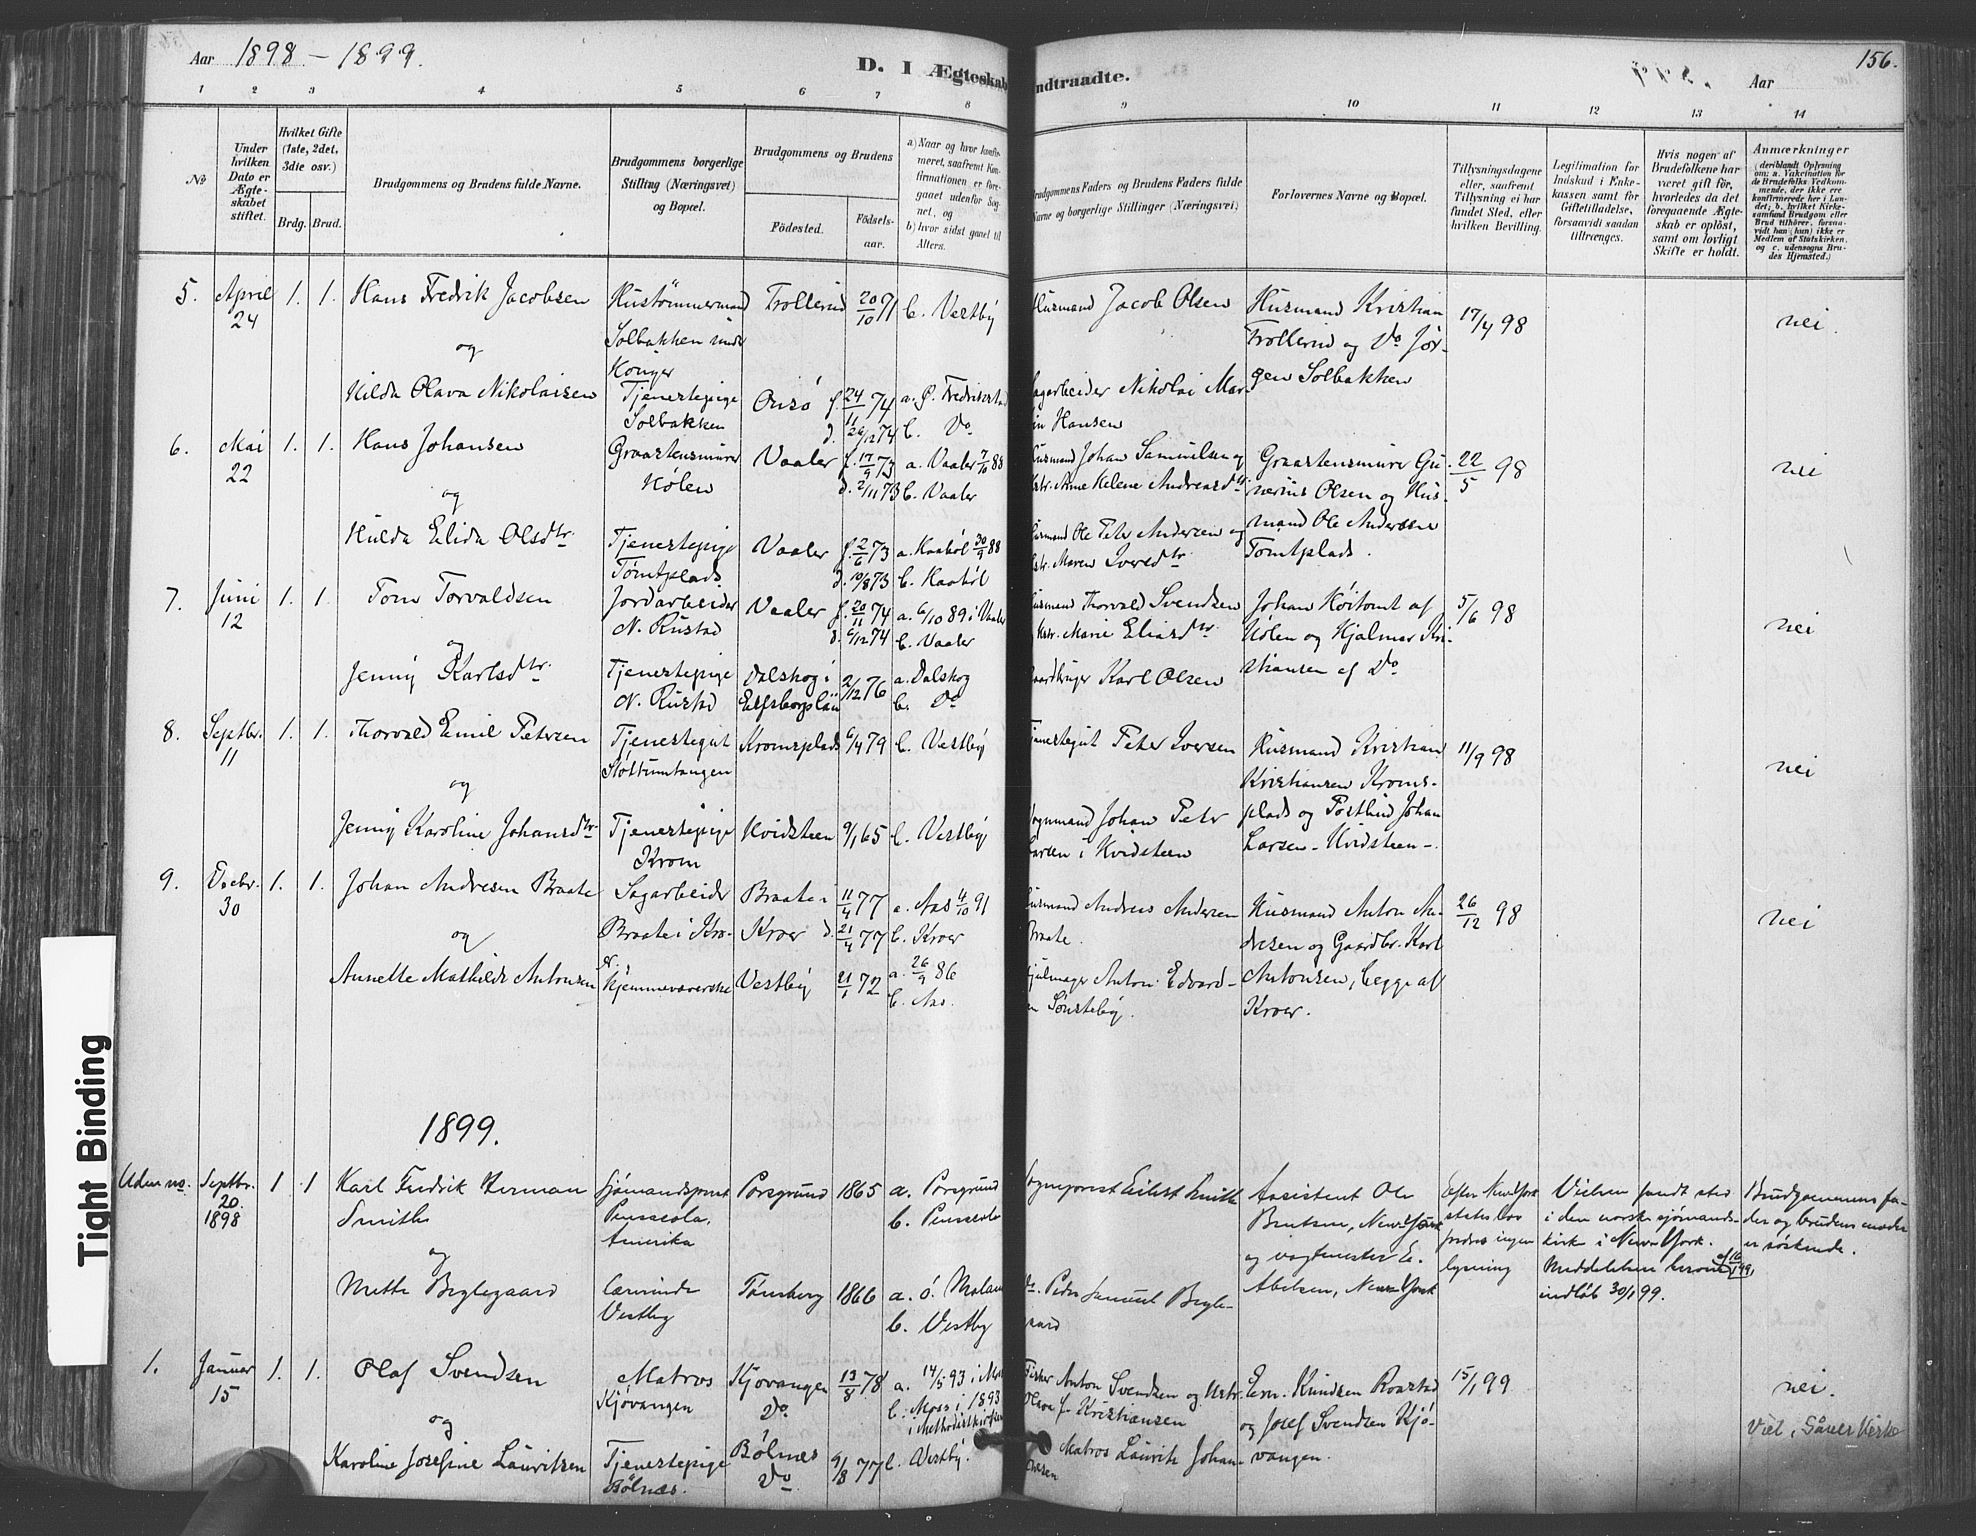 Aar 1898 – 1899.
D. I Ægteskab
ndtraadte.
Aar
156.
1 2 3 4 5 6 7 8 9 10 11 12 13 14
No
Under hvilken Dato er Ægteskabet stiftet.
Hvilket Gifte (1ste, 2det, 3die osv.)
Brdg. Brud.
Brudgommens og Brudens fulde Navne.
Brudgommens borgerlige Stilling (Næringsvei) og Bopæl.
Brudgommens og Brudens
Fødested.
Fødsels-aar.
a) Naar og hvor konfirmeret, saafremt Konfirmationen er foregaaet udenfor Sognet, og
b) hvor sidst gaaet til Alters.
Brudgommens Faders og Brudens Faders fulde
Navne og borgerlige Stillinger (Næringsvei)
Forlovernes Navne og Bopæl.
Tillysningsdagene eller, saafremt Tillysning ei har fundet Sted, efter hvilken Bevilling.
Legitimation for Indskud i Enkekassen samt for Giftetilladelse, forsaavidt saadan tiltrænges.
Hvis nogen af Brudefolkene har været gift før, hvorledes da det foregaaende Ægteskab er opløst, samt om lovligt Skifte er holdt.
Anmærkninger
(deriblandt Oplysning om: a. Vakcination for de Brudefolks Vedkommende, der ikke ere konfirmerede her i Landet; b. hvilket Kirkesamfund Brudgom eller Brud tilhører, forsaavidt han (hun) ikke er Medlem af Statskirken, og c. udensogns Brudes Hjemsted.)
5. April 24 1. 1. Hans Fredrik Jacobsen
Hustømmermand Solbakken under Krüger
Trollerud 20/10 71 b. Vestby
Husmand Jacob Olsen
Husmand Kristian Trollerud og Do Jørgen Solbakken
17/4 98
nei.
og
Hilda Olava Nikolaisen
Tjenestepige Solbakken
Onsø f. 24/11 74 d. 26/12 74
a. Ø. Fredrikstad
b. Do
Sagarbeider Nikolai Mar
in Hansen
6. Mai 22 1. 1. Hans Johansen
Graastensmurer Hølen
Vaaler f. 17/9 73 d. 2/11 73
a. Vaaler 7/10 88
b. Vaaler
Husmand Johan Samuelsen og
Hstr. Anne Helene Andreasdtr
Graastensmurer Gunerius Olsen og Husmand Ole Andersen Tomtplads.
22/5 98
nei
og
Hulda Elida Olsdtr.
Tjenestepige Tomtplads.
Vaaler f. 2/6 73 d. 10/8 73
a. Haabøl 30/9 88
b. Haabøl
Husmand Ole Peter Andersen og
Hstr. Maren Iversdtr
7. Juni 12 1. 1. Tom Torvaldsen
Jordarbeider N. Rustad
Vaaler f. 20/11 74 d. 6/12 74
a. 6/10 89 i Vaaler
b. Vaaler
Husmand Thorvald Svendsen
Hstr. Marie Eliasdtr.
Johan Høitomt af Hølen og Hjalmar Kristiansen af Do
5/6 98
nei
og
Jenny Karlsdtr.
Tjenestepige N. Rustad
Dalskog i Elfsborgslän
2/12 76
a. Dalskog
b. Do
Gaardbruger Karl Olsen
8. Septbr. 11 1. 1. Thorvald Emil Petersen
Tjenestegut Stottumtangen
Kromsplads 6/4 79 b. Vestby
Tjenestegut Peter Iversen
Husmand Kristian Kristiansen Kromsplads og Postbud Johan Larsen – Hvidsteen –.
11/9 98
nei
og
Jenny Karoline Johansdtr.
Tjenestepige Krom
Hvidsteen 9/1 65 b. Vestby
Vognmand Johan Peter
Larsen i Hvidsteen
9. Decbr. 30 1. 1. Johan Andresen Braate
Sagarbeider Braate i Kroer.
Braate i Kroer 11/4 77 d. 21/4 77
a. Aas 4/10 91
b. Kroer
Husmand Andreas Andersen
Braate.
Husmand Anton Andresen og Gaardbr. Karl Antonsen, begge af Kroer.
26/12 98
nei
og
Annette Mathilde Antonsen
Hjemmeværende
Vestby 21/1 72
a. 26/9 86
b. Aas.
Hjulmager Anton Edvard
en Sønsteby.
1899.
Uden no. Septbr. 20. 1898 1 1 Karl Fredrik Herman Smith
Sjømandsprest Pensacola, Amerika
Porsgrund 1865
a. Porsgrund
b. Pensacola
Sogneprest Eilert Smith
Assistent Ole Bentsen, New-York og vagtmester E. Abelsen, New-York
Efter New York states lov fordres ingen lysning
Vielsen fandt sted i den norske sjømandskirke i New-York. Meddelelsen herom af 16/1 99, indløb 30/1 99.
Brudgommens fader og brudens moder er søskende.
og
Mette Beglegaard
Lærerinde Vestby
Tønsberg 1866
b. Vestby
Do. Peder Samuel Begle-
aard
1. Januar 15 1. 1. Olaf Svendsen
Matros Kjøvangen
Kjøvangen Do 13/8 78
a. 14/5 93 i Moss
b. Moss i 1893 i Methodistkirken
Fisker Anton Svendsen og Hstr.
Olava f. Kristiansen
Ern. Knudsen Roastad og Josef Svendsen Kjøvangen.
15/1 99
nei.
Viel. i Såner Kirke
og
Karoline Josefine Lauritzen
Tjenestepige Bølnes.
Bølnes Do 9/8 77 b. Vestby.
Matros Lauritz Johan-
nesen
Tight Binding